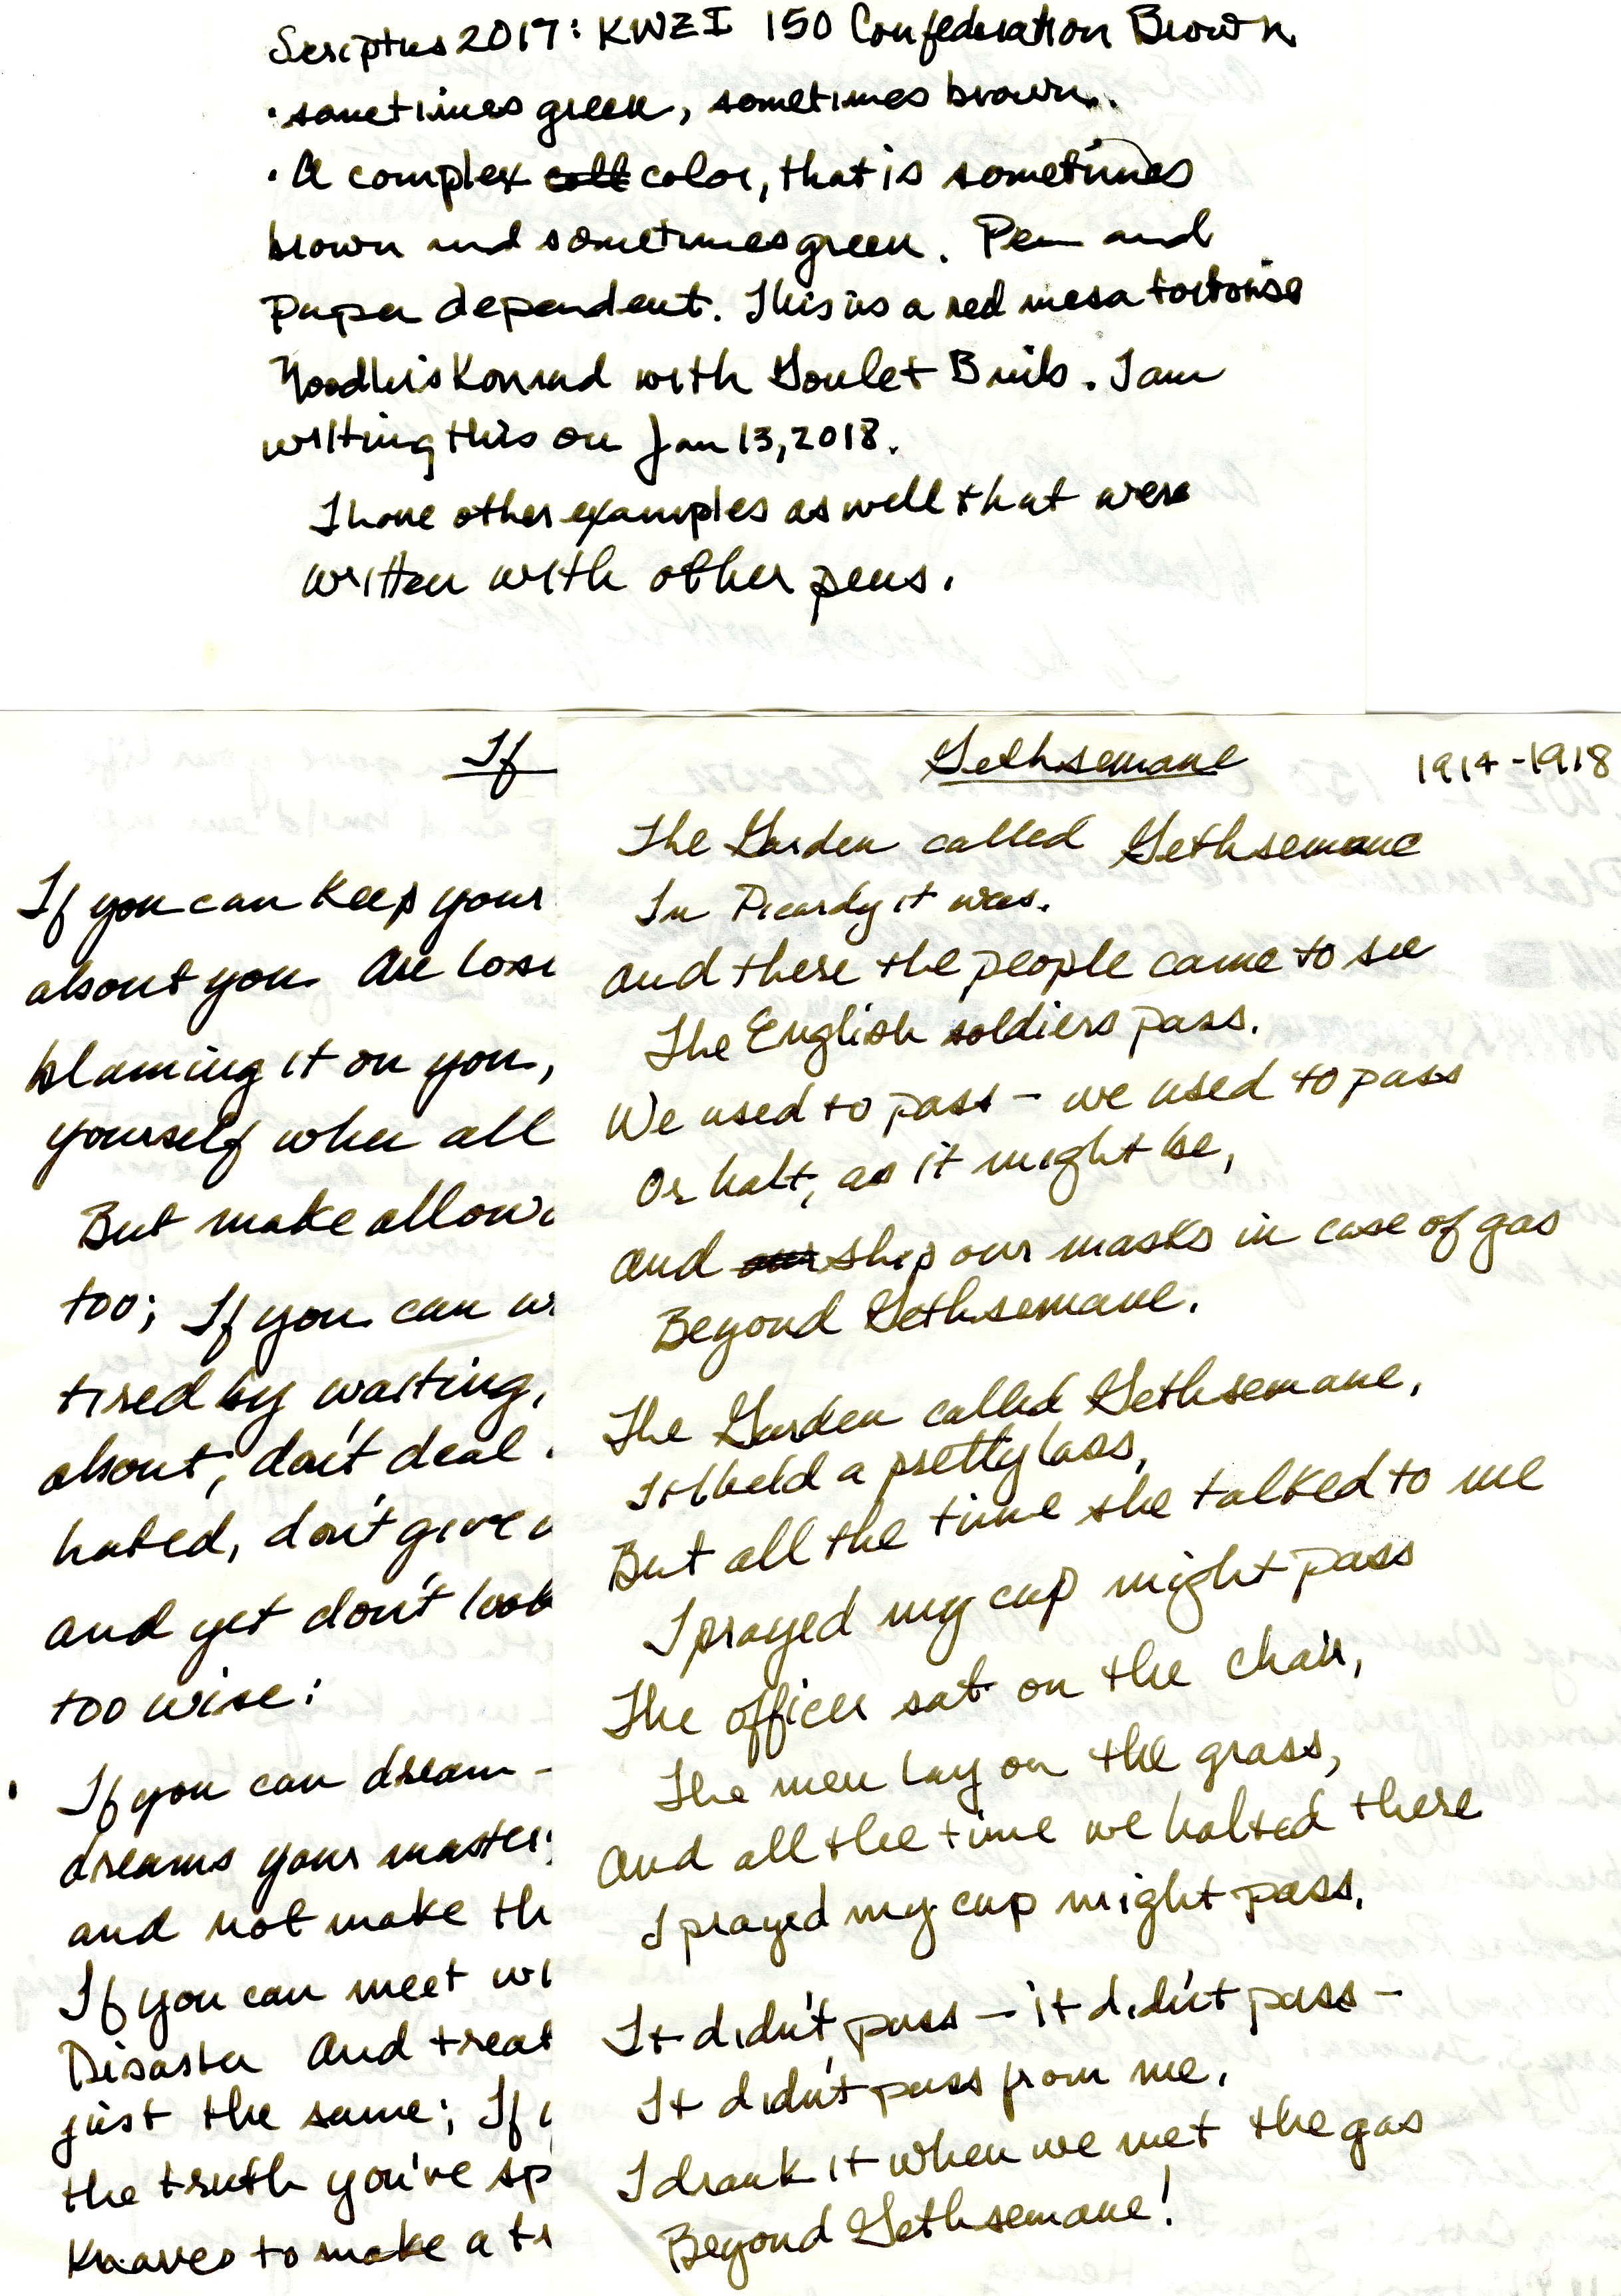 Scriptus 2017: KWZI 150 Confederation Brown
· sometimes green, sometimes brown.
· A complex colt color, that is sometimes
brown and sometimes green. Pen and
Paper dependent. This is a red mesa tortoise
Noodler's Konrad with Goulet B nib. I am
writing this on Jan 13, 2018.
I have other examples as well that were
written with other pens.
If
If you can keep your
about you Are losi
blaming it on you,
yourself when all
But make allow
too; If you can w
tired by waiting,
about, don't deal
hated, don't give
and yet don't look
too wise:
If you can dream -
dreams your master;
and not make th
If you can meet wi
Disaster And treat
just the same; If
the truth you've sp
Knaves to make a tr
Gethsemane 1914-1918
The Garden called Gethsemane
In Picardy it was.
And there the people came to see
The English soldiers pass.
We used to pass - we used to pass
Or halt, as it might be,
And our ship our masks in case of gas
Beyond Gethsemane.
The Garden called Gethsemane,
It held a pretty lass,
But all the time she talked to me
I prayed my cup might pass
The officer sat on the chair,
The men lay on the grass,
And all the time we halted there
I prayed my cup might pass.
It didn't pass - it didn't pass -
It didn't pass from me.
I drank it when we met the gas
Beyond Gethsemane!